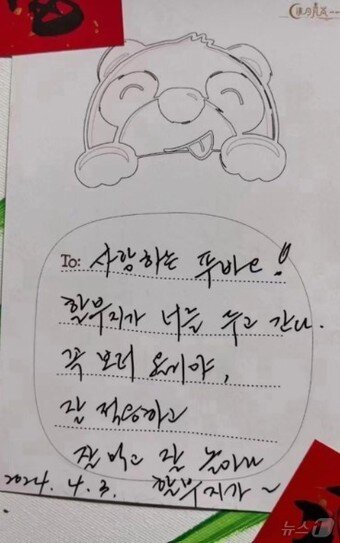 To: 사랑하는 푸바오!!
할부지가 너를 두고 간다.
꼭 보러 올께야.
잘 적응하고
잘 먹고 잘 놀아라
2024. 4. 3. 할부지가~
뉴스1